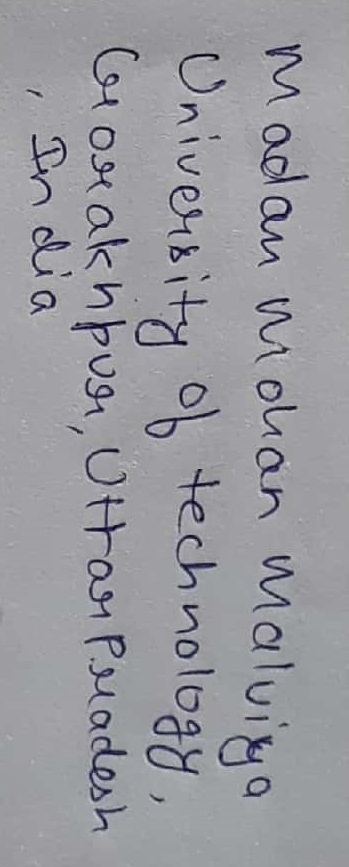 Madan Mohan Malviya
University of technology,
Gorakhpur, Uttar Pradesh
, India